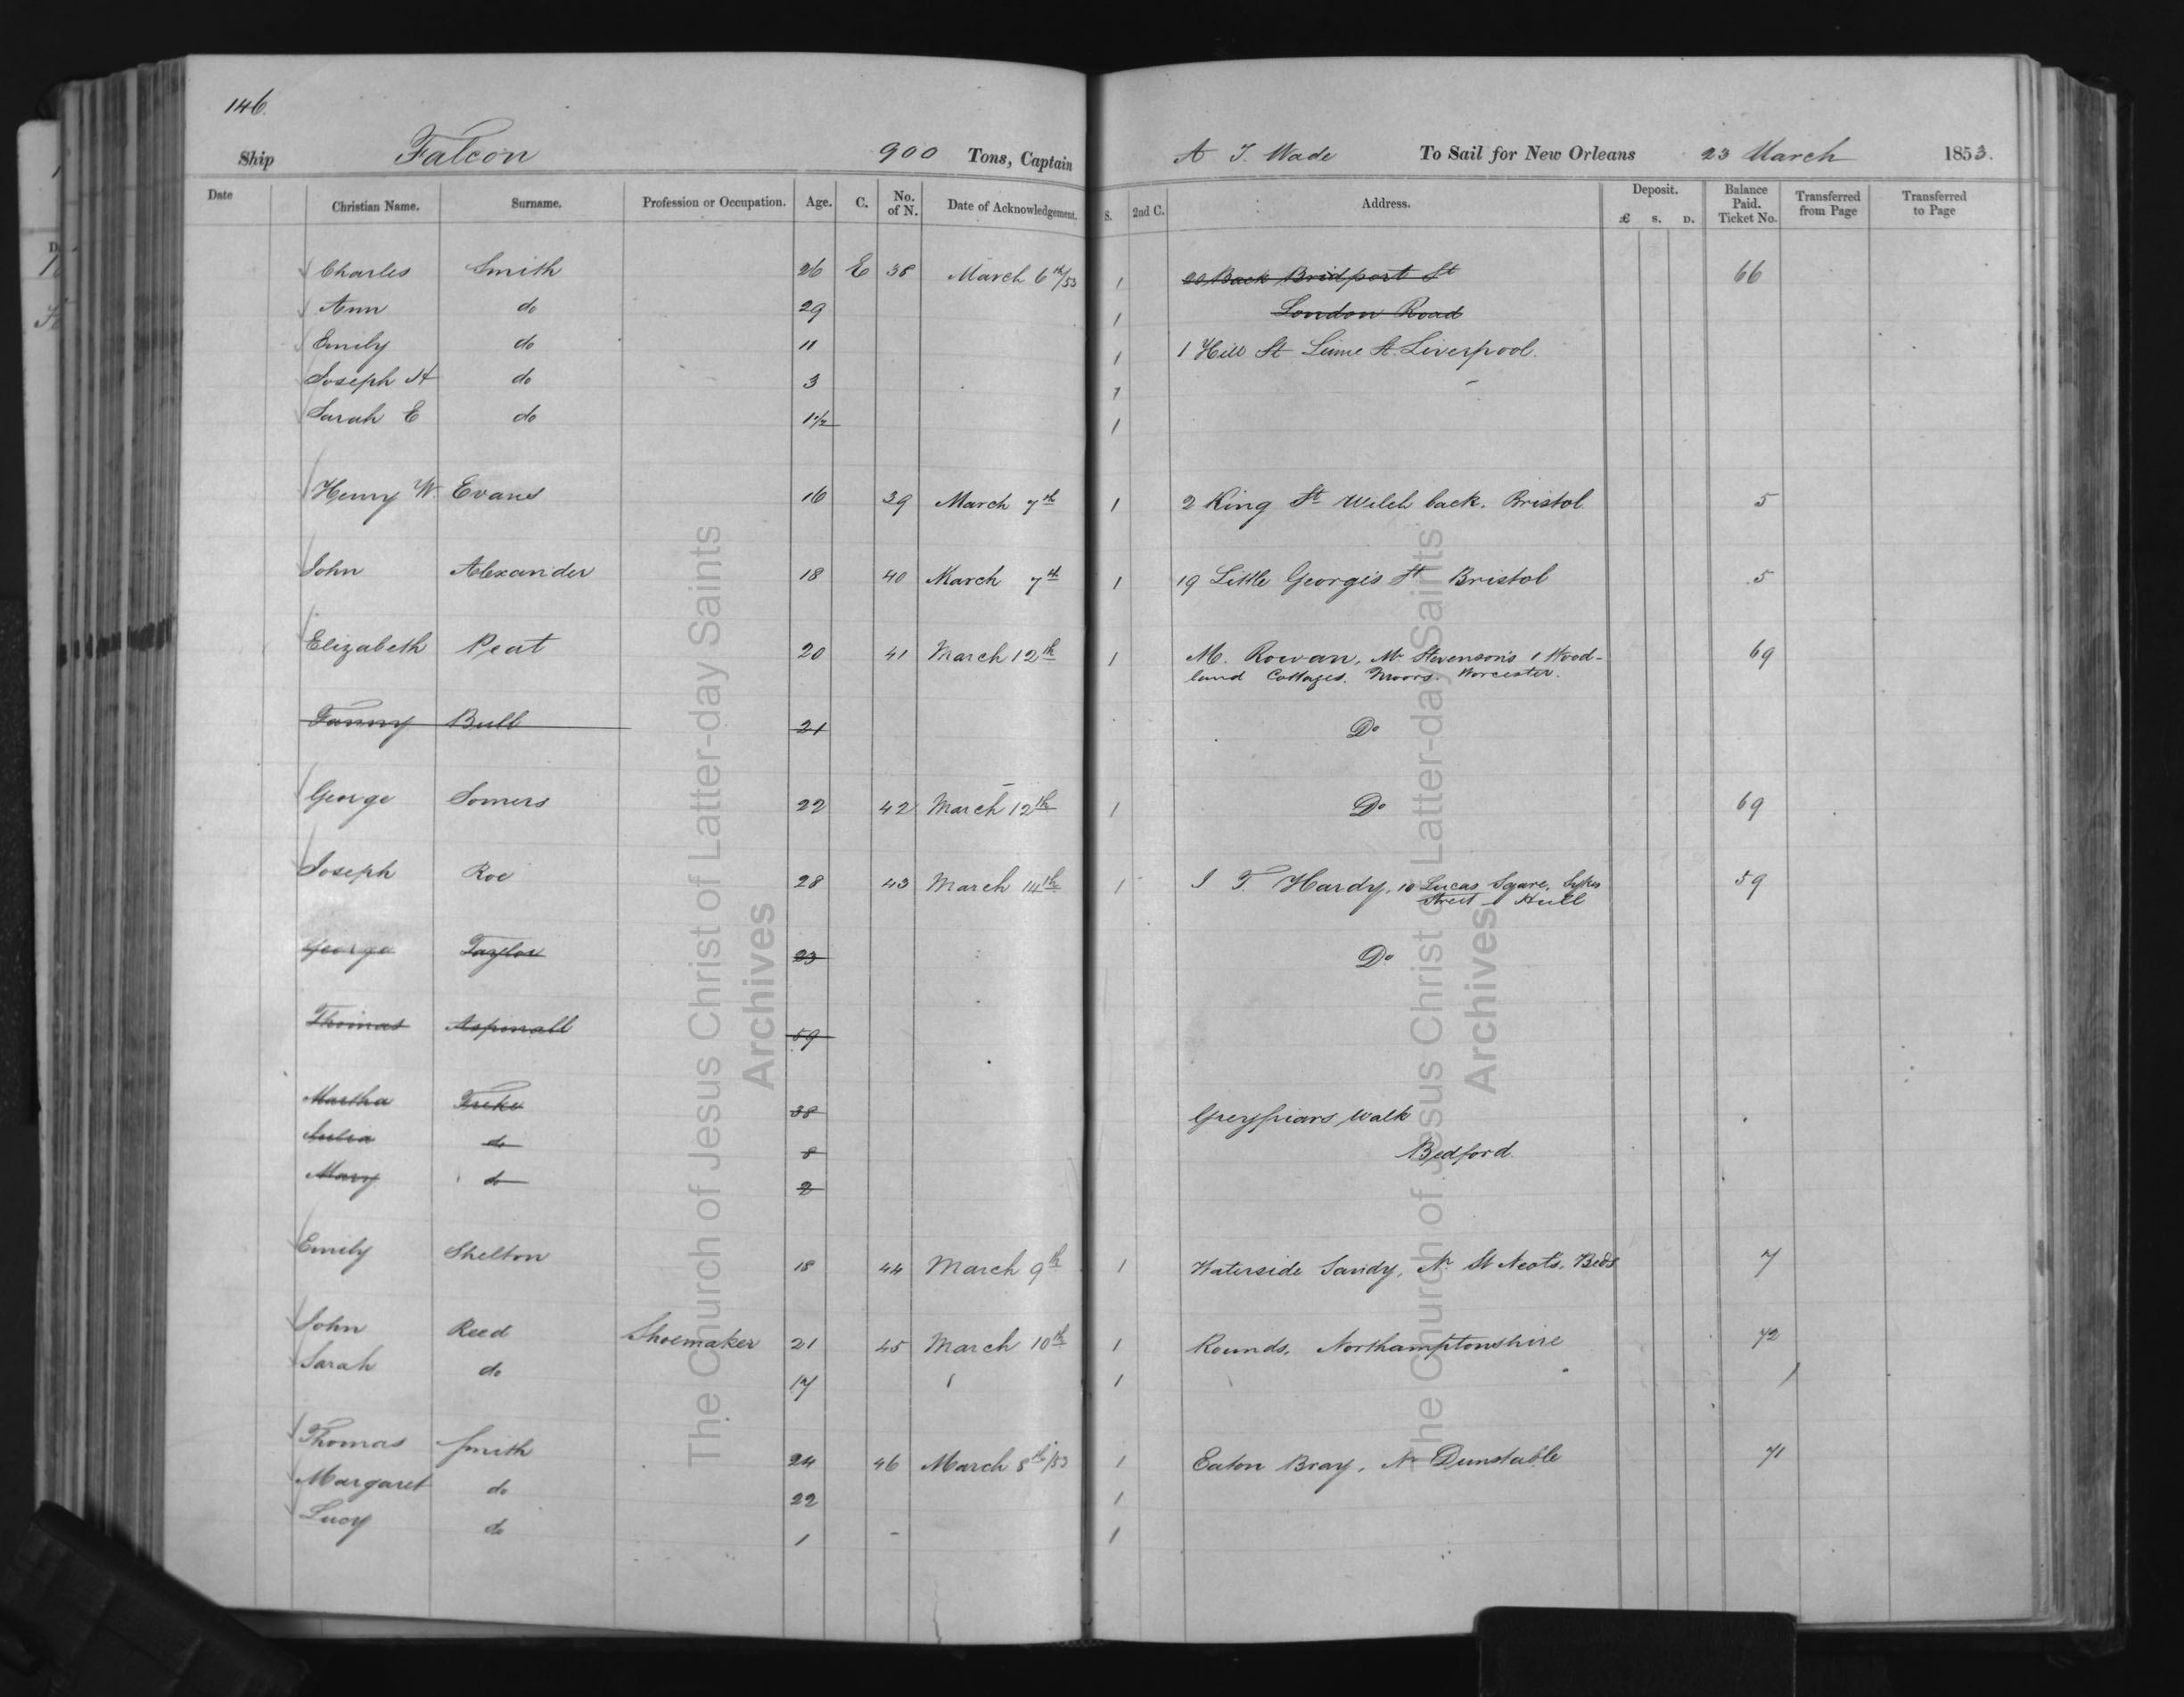 146.
Ship Falcon 900 Tons, Captain A T. Wade To Sail for New Orleans 23 March 1853.
Date Christian Name. Surname. Profession or Occupation. Age. C. No. of N. Date of Acknowledgement. S. 2nd C. Address. Deposit. £ s. D. Balance Paid. Ticket No. Transferred from Page Transferred to Page
Charles Smith 26 E 38 March 6th/53 1 20 Back Bridport St 66
Ann do 29 1 London Road
Emily do 11 1 1 Hill St Lime St. Liverpool.
Joseph H do 3 1
Sarah E do 1 1/2 1
Henry W. Evans 16 39 March 7th 1 2 King St Welch back. Bristol 5
John Alexander 18 40 March 7th 1 19 Little George's St Bristol 5
Elizabeth Peat 20 41 March 12th 1 M. Rowan, Mr Stevenson's 1 Wood- 69
land Cottages. Moors. Worcester.
Fanny Bull 21 Do
George Somers 22 42 March 12th 1 Do 69
Joseph Roe 28 43 March 14th 1 J T Hardy, 10 Lucas Sqare, Sykes 59
Street Hull
George Taylor 23 Do
Thomas Aspinall 59
Martha 38 Greyfriars Walk
Julia do 8 Bedford.
Mary do 2
Emily Shelton 18 44 March 9th 1 Waterside Sandy, Nr St Neots. Beds 7
John Reed Shoemaker 21 45 March 10th 1 Rounds, Northamptonshire 72
Sarah do 17 1
Thomas Smith 24 46 March 8th/53 1 Eaton Bray, Nr Dunstable 71
Margaret do 22 1
Lucy do 1 1
The Church of Jesus Christ of Latter-day Saints
Archives
The Church of Jesus Christ of Latter-day Saints
Archives